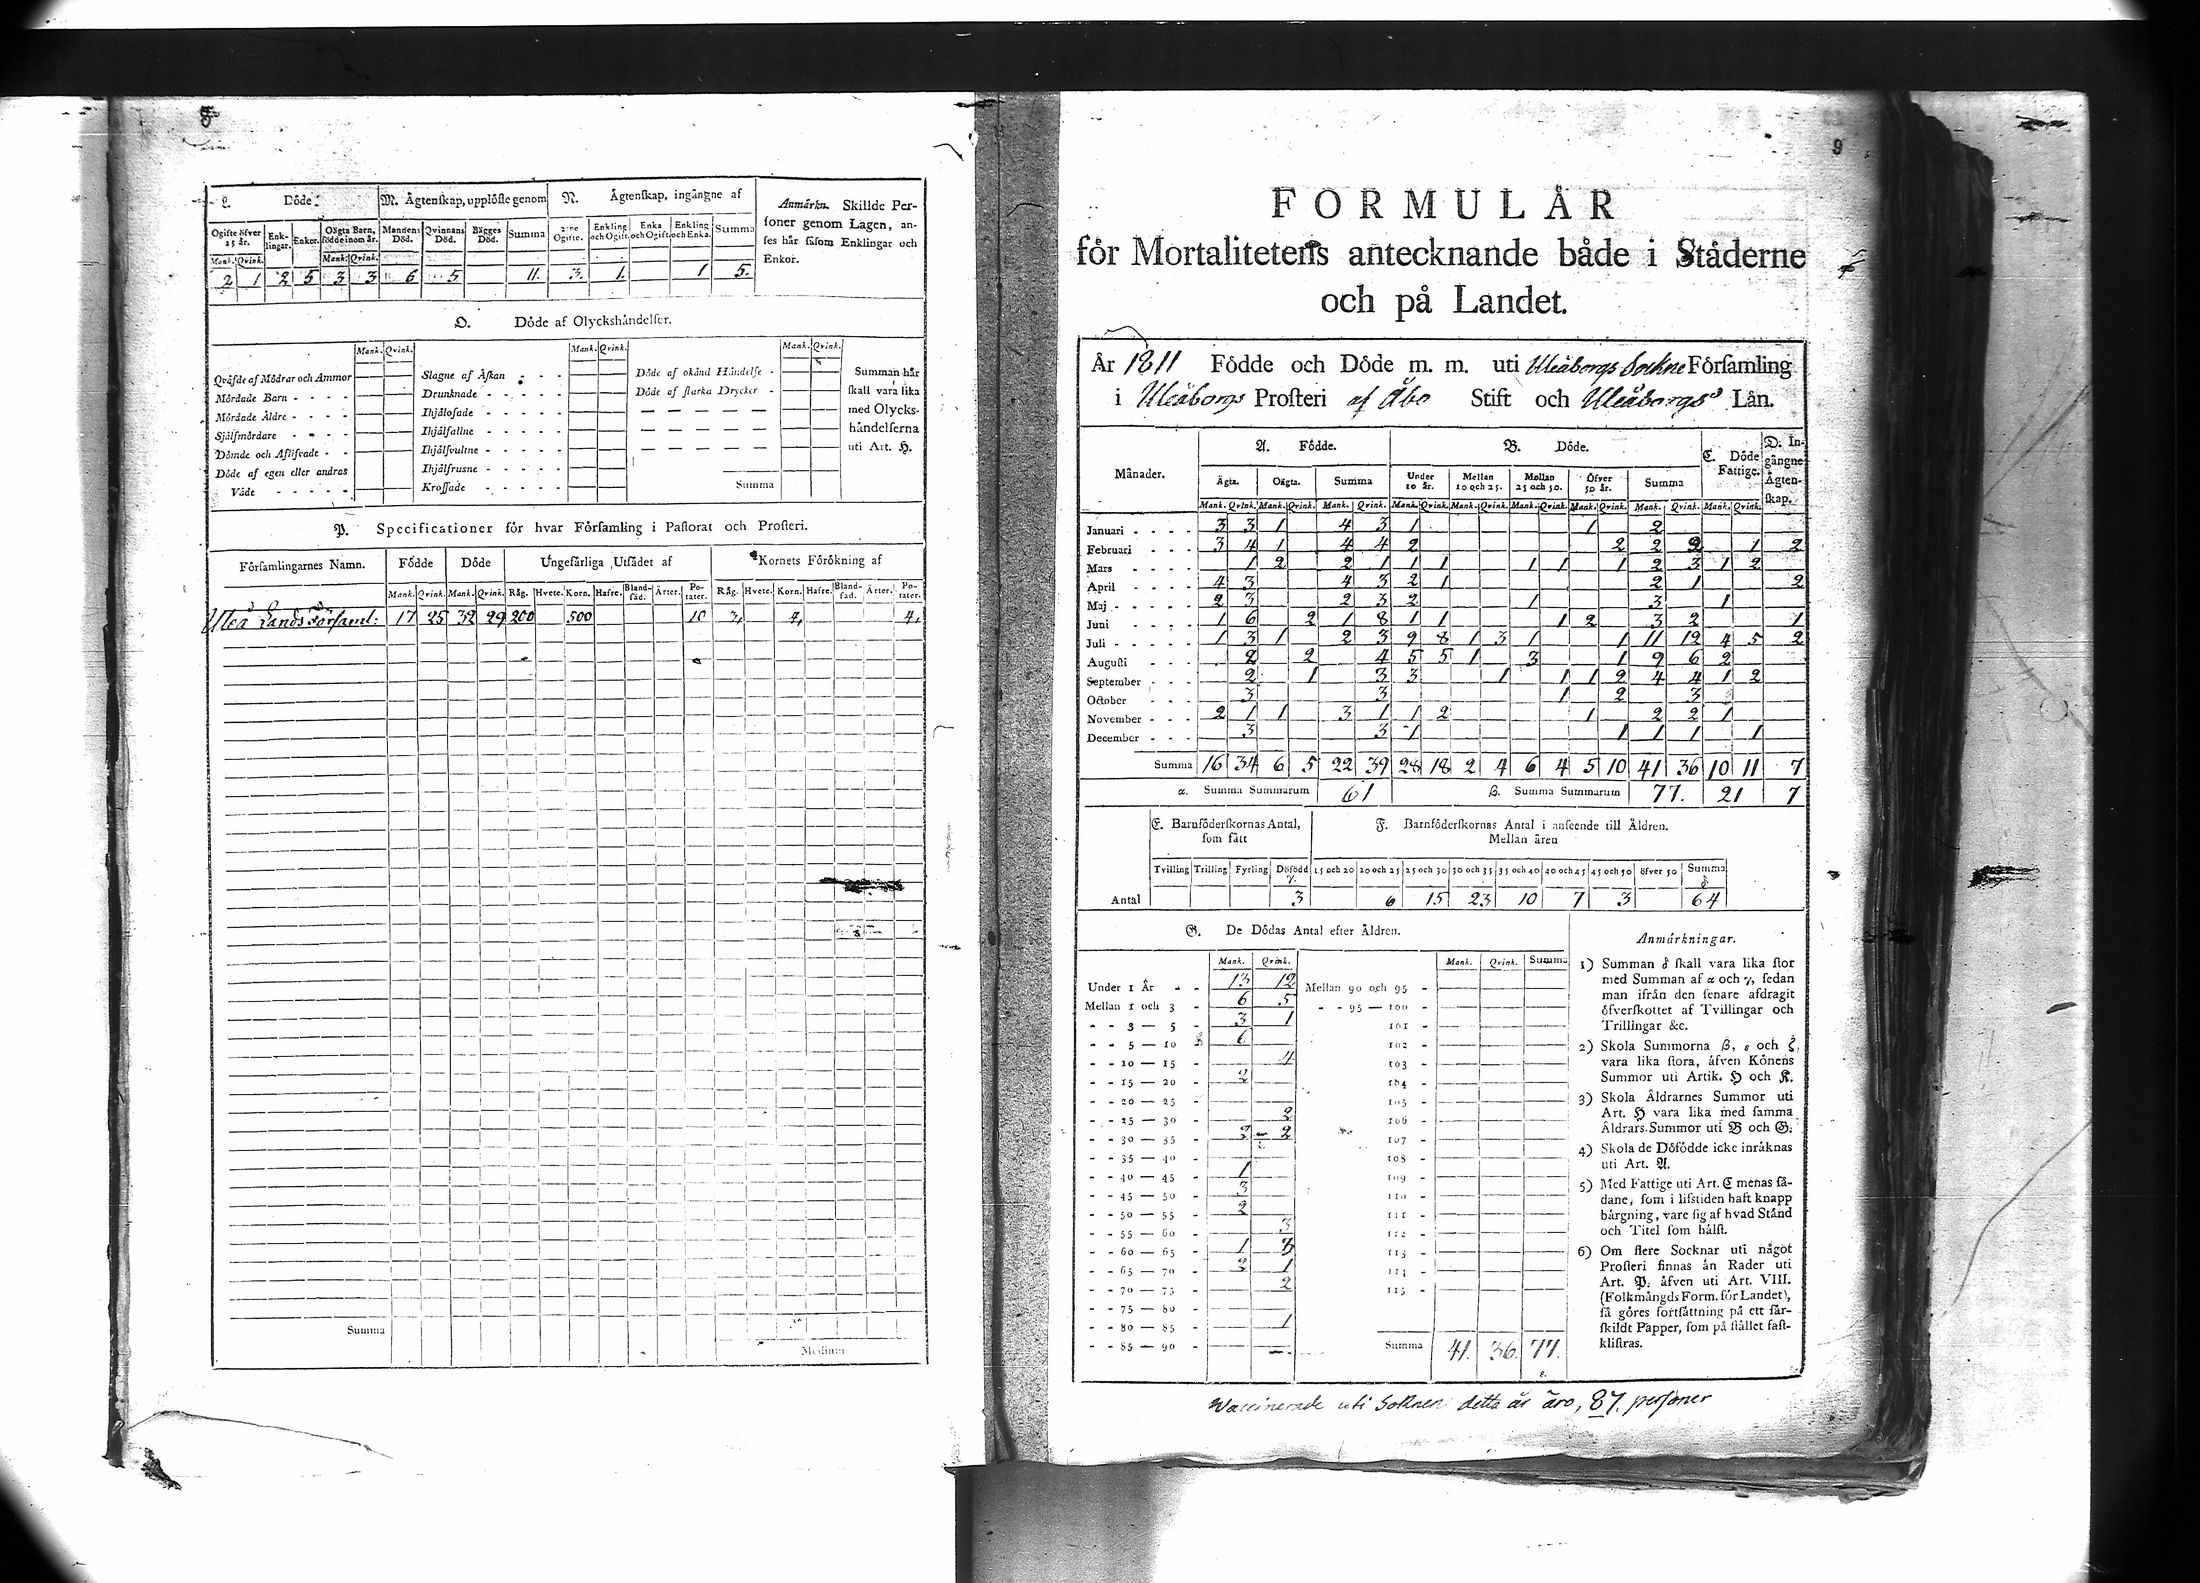 8
L. Döde. M. Ägtenskap, upplöste genom N. Ägtenskap, ingångne af Anmärkn. Skillde Per-
soner genom Lagen, an-
ses här såsom Enklingar och
Enkor.
Ogifte öfver 15 år. Enk-lingar. Enkor. Oägta Barn, födde inom år. Mannens Död. Qvinnans Död. Bägges Död. Summa 2:ne Ogifte. Enkling och Ogift. Enka och Ogift. Enkling och Enka. Summa
Mank. Qvink. Mank. Qvink.
2 1 2 5 3 3 6 5 11. 3. 1. 1 5.
O. Döde af Olyckshändelser.
Mank. Qvink. Mank. Qvink. Mank. Qvink.
Qväfde af Mödrar och Ammor Slagne af Åskan - - - Döde af okänd Händelse - Summan här
Mördade Barn - - - - Drunknade - - - - - Döde af starka Drycker - skall vara lika
Mördade Äldre - - - - Ihjälosade - - - - med Olycks-
Självmördare - - - - Ihjälfallne - - - - händelserna
Dömde och Aflifvade - - Ihjälsvultne - - - - uti Art. H.
Döde af egen eller andras Ihjälfrusne - - - - -
Våde - - - - - Krossade - - - - - Summa
P. Specificationer för hvar Församling i Pastorat och Prosteri.
Församlingarnes Namn. Födde Döde Ungefärliga Utsädet af Kornets Förökning af
Mank. Qvink. Mank. Qvink. Råg. Hvete. Korn. Hafre. Bland-säd. Ärter. Po-tater. Råg. Hvete. Korn. Hafre. Bland-säd. Ärter. Po-tater.
Uleå Lands Församl: 17 25 32 29 200 500 10 3, 4, 4,
Summa
Medium
9
FORMULÄR
för Mortalitetens antecknande både i Städerne
och på Landet.
År 1811 Födde och Döde m. m. uti Uleåborgs Sockne Församling
i Uleåborgs Prosteri af Åbo Stift och Uleåborgs Län.
Månader. A. Födde. B. Döde. C. Döde Fattige. D. In-gångne Ägten-skap.
Ägta. Oägta. Summa Under 10 år. Mellan 10 och 25. Mellan 25 och 50. Öfver 50 år. Summa
Mank. Qvink. Mank. Qvink. Mank. Qvink. Mank. Qvink. Mank. Qvink. Mank. Qvink. Mank. Qvink. Mank. Qvink. Mank. Qvink.
Januari - - - - 3 3 1 4 3 1 1 2
Februari - - - 3 4 1 4 4 2 2 2 2 1 2
Mars - - - 1 2 2 1 1 1 1 1 1 2 3 1 2
April - - - 4 3 4 3 2 1 2 1 2
Maj - - - - - 2 3 2 3 2 1 3 1
Juni - - - - 1 6 2 1 8 1 1 1 2 3 2 1
Juli - - - - - 1 3 1 2 3 9 8 1 3 1 1 11 12 4 5 2
Augusti - - - 2 2 4 5 5 1 3 1 9 6 2
September - - - 2 1 3 3 1 1 1 2 4 4 1 2
October - - - 3 3 1 2 3
November - - - 2 1 1 3 1 1 2 1 2 2 1
December - - - 3 3 1 1 1 1 1
Summa 16 34 6 5 22 39 28 18 2 4 6 4 5 10 41 36 10 11 7
α. Summa Summarum 61 β. Summa Summarum 77. 21 7
E. Barnföderskornas Antal, som fått F. Barnföderskornas Antal i anseende till Åldren.
Mellan åren
Tvilling Trilling Fyrling Döfödd γ. 15 och 20 20 och 25 25 och 30 30 och 35 35 och 40 40 och 45 45 och 50 öfver 50 Summa δ
Antal 3 6 15 23 10 7 3 64
G. De Dödas Antal efter Åldren.
Mank. Qvink. Mank. Qvink. Summa
Under 1 År - - 13 12 Mellan 90 och 95 -
Mellan 1 och 3 - 6 5 - - 95 — 100 -
- - 3 — 5 - 3 1 101 -
- - 5 — 10 6 102 -
- - 10 — 15 - 4 103 -
- - 15 — 20 - 2 104 -
- - 20 — 25 - 105 -
- - 25 — 30 - 2 106 -
- - 30 — 35 - 2 2 107 -
- - 35 — 40 - 108 -
- - 40 — 45 - 1 109 -
- - 45 — 50 - 3 110 -
- - 50 — 55 - 2 111 -
- - 55 — 60 - 3 112 -
- - 60 — 65 - 1 3 113 -
- - 65 — 70 - 2 1 114 -
- - 70 — 75 - 2 115 -
- - 75 — 80 -
- - 80 — 85 - 1
- - 85 — 90 - Summa 41. 36. 77.
ε.
Anmärkningar.
1) Summan δ skall vara lika stor
med Summan af α och γ, sedan
man ifrån den senare afdragit
öfverskottet af Tvillingar och
Trillingar &c.
2) Skola Summorna β, ε och ζ,
vara lika stora, äfven Könens
Summor uti Artik. H och K.
3) Skola Åldrarnes Summor uti
Art. H vara lika med samma
Åldrars Summor uti B och G.
4) Skola de Döfödde icke inräknas
uti Art. A.
5) Med Fattige uti Art. C menas så-
dane, som i lifstiden haft knapp
bärgning, vare sig af hvad Stånd
och Titel som hälst.
6) Om flere Socknar uti något
Prosteri finnas än Rader uti
Art. P. äfven uti Art. VIII.
(Folkmängds Form. för Landet),
så göres fortsättning på ett sär-
skildt Papper, som på stället fast-
klistras.
Waccinerade uti Soknen detta år äro, 87. personer